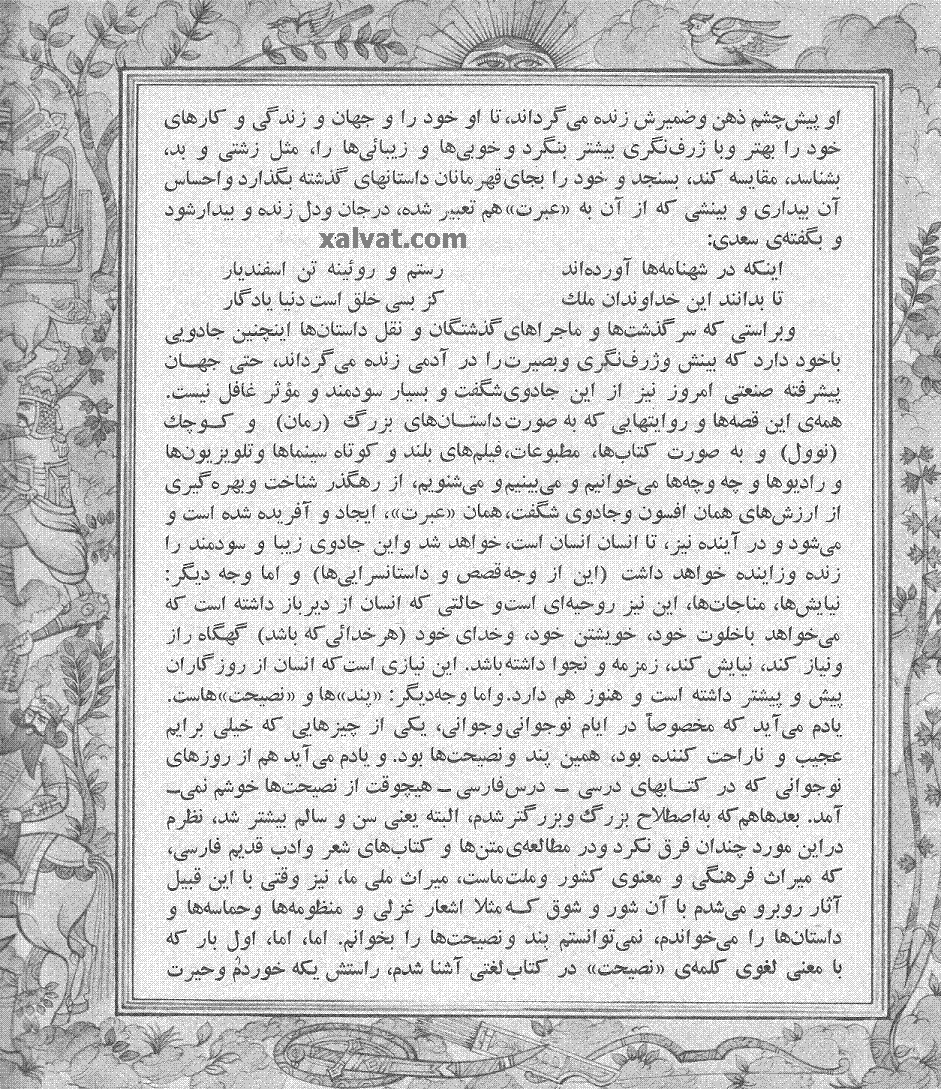 او پیش‌چشم ذهن وضمیرش زنده می‌گرداند، تا او خود را و جهان و زندگی و کارهای
خود را بهتر وبا ژرف‌نگری بیشتر بنگرد و خوبی‌ها و زیبائی‌ها را، مثل زشتی و بد،
بشناسد، مقایسه کند، بسنجد و خود را بجای قهرمانان داستانهای گذشته بگذارد واحساس
آن بیداری و بینشی که از آن به «عبرت» هم تعبیر شده، درجان ودل زنده و بیدارشود
و بگفته‌ی سعدی:
xalvat.com
اینکه در شهنامه‌ها آورده‌اند رستم و روئینه تن اسفندیار
تا بدانند این خداوندان ملك کز بسی خلق است دنیا یادگار
وبراستی که سرگذشت‌ها و ماجراهای گذشتگان و نقل داستان‌ها اینچنین جادویی
باخود دارد که بینش وژرف‌نگری وبصیرت را در آدمی زنده می‌گرداند، حتی جهان
پیشرفته صنعتی امروز نیز از این جادوی شگفت و بسیار سودمند و مؤثر غافل نیست.
همه‌ی این قصه‌ها و روایتهایی که به صورت داستان‌های بزرگ (رمان) و کوچك
(نوول) و به صورت کتاب‌ها، مطبوعات، فیلم‌های بلند و کوتاه سینماها وتلویزیون‌ها
و رادیوها و چه وچه‌ها می‌خوانیم و می‌بینیم و می‌شنویم، از رهگذر شناخت وبهره‌گیری
از ارزش‌های همان افسون وجادوی شگفت، همان «عبرت»، ایجاد و آفریده شده است و
می‌شود و در آینده نیز، تا انسان انسان است، خواهد شد واین جادوی زیبا و سودمند را
زنده وزاینده خواهد داشت (این از وجه قصص و داستانسرایی‌ها) و اما وجه دیگر:
نیایش‌ها، مناجات‌ها، این نیز روحیه‌ای است و حالتی که انسان از دیرباز داشته است که
می‌خواهد باخلوت خود، خویشتن خود، وخدای خود (هر خدائی‌که باشد) گهگاه راز
ونیاز کند، نیایش کند، زمزمه و نجوا داشته باشد. این نیازی است‌که انسان از روزگاران
پیش و پیشتر داشته است و هنوز هم دارد. واما وجه‌دیگر: «پند»ها و «نصیحت»هاست.
یادم می‌آید که مخصوصاً در ایام نوجوانی وجوانی، یکی از چیزهایی که خیلی برایم
عجیب و ناراحت کننده بود، همین پند ونصیحت‌ها بود. و یادم می‌آید هم از روزهای
نوجوانی که در کتابهای درسی ـ درس فارسی ـ هیچوقت از نصیحت‌ها خوشم نمی‌ـ
آمد. بعدهاهم که به‌اصطلاح بزرگ وبزرگتر شدم، البته یعنی سن و سالم بیشتر شد، نظرم
دراین مورد چندان فرق نکرد ودر مطالعه‌ی متن‌ها و کتاب‌های شعر وادب قدیم فارسی،
که میراث فرهنگی و معنوی کشور وملت ماست، میراث ملی ما، نیز وقتی با این قبیل
آثار روبرو می‌شدم با آن شور و شوق که مثلا اشعار غزلی و منظومه‌ها وحماسه‌ها و
داستان‌ها را می‌خواندم، نمی‌توانستم پند ونصیحت‌ها را بخوانم. اما، اما، اول بار که
با معنی لغوی کلمه‌ی «نصیحت» در کتاب لغتی آشنا شدم، راستش یکه خوردم وحیرت